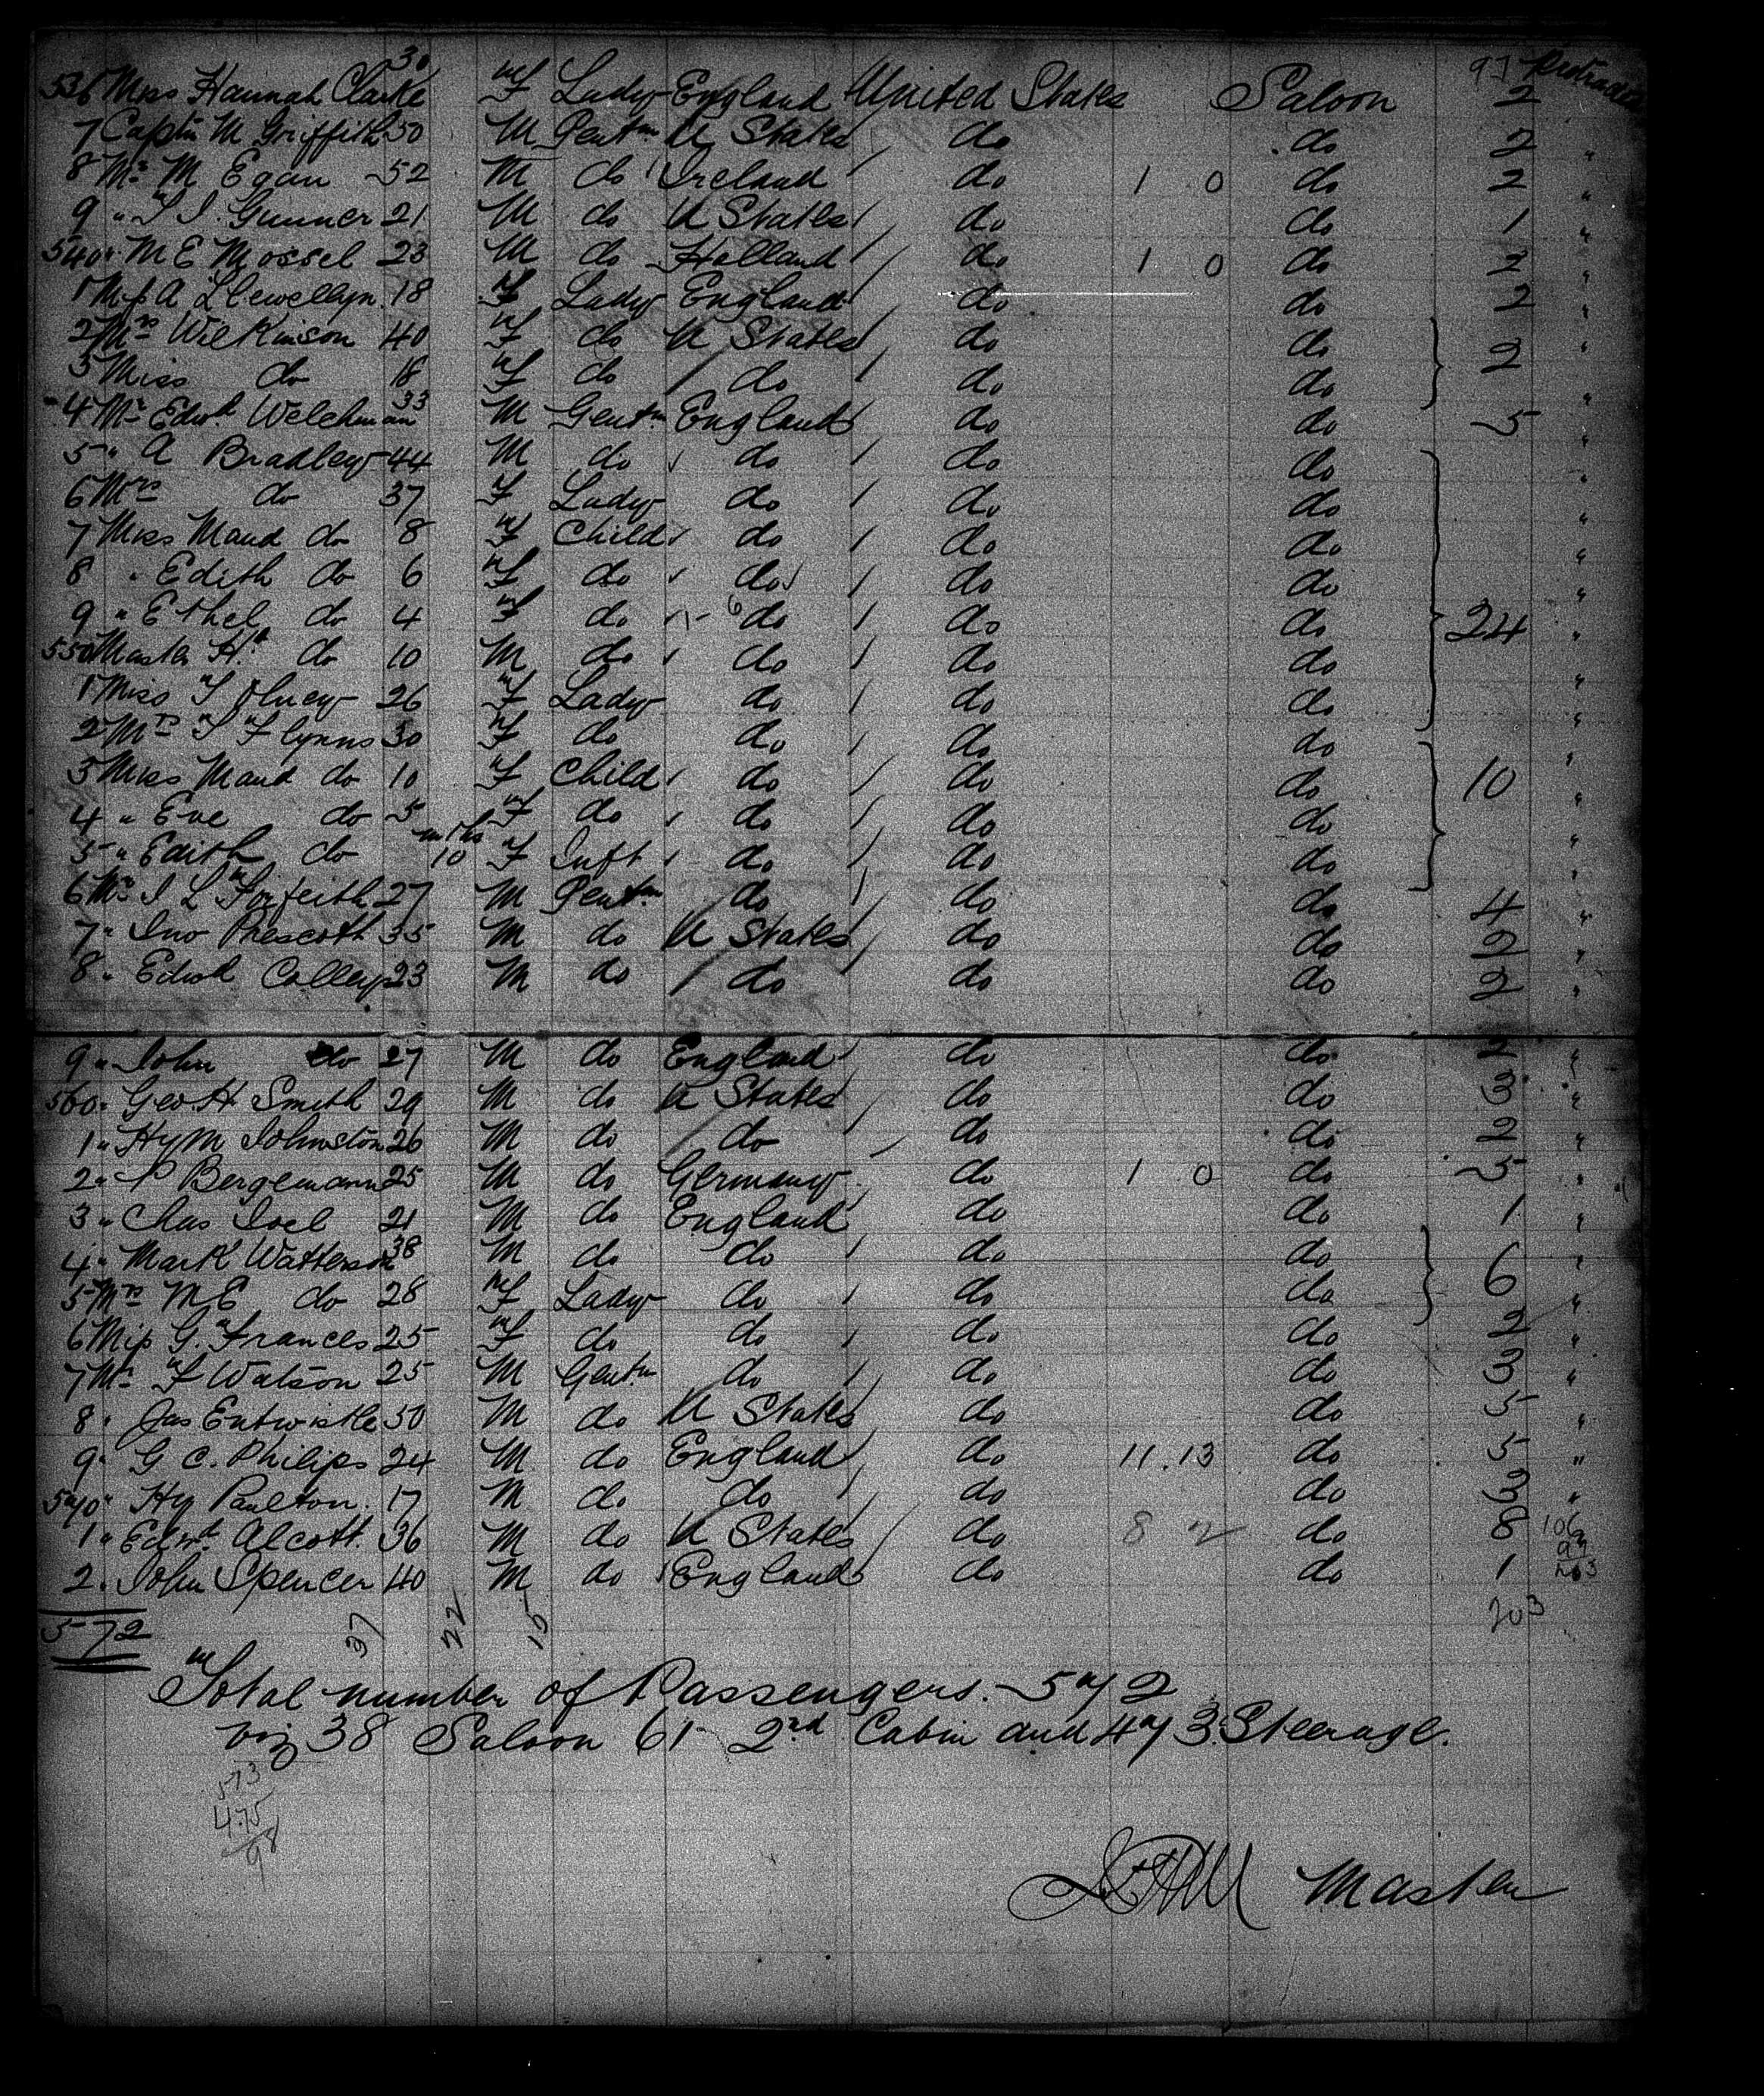 536 Miss Hannah Clarke 30 F Lady England United States Saloon 97 2
7 Captn M Griffith 50 M Gentn U States do do 2 "
8 Mr M Egan 52 M do Ireland do 1 0 do 2 "
9 " Gunner 21 M do U States do do 1 "
540 " M E Mossel 23 M do Holland do 1 0 do 2 "
1 Miss A Llewellyn 18 F Lady England do do 2 "
2 Mrs Wilkinson 40 F do U States do do 2 "
3 Miss do 18 F do do do do "
4 Mr Edwd. Welchman 33 M Gentn England do do 5 "
5 " A Bradley 44 M do do do do "
6 Mrs do 37 F Lady do do do "
7 Miss Maud do 8 F Child do do do "
8 " Edith do 6 F do do do do "
9 " Ethel do 4 F do do do do 24 "
550 Master H. do 10 M do do do do "
1 Miss 26 F Lady do do do "
2 Mrs Flynns 30 F do do do do "
3 Miss Maud do 10 F Child do do do 10 "
4 " Eve do 5 F do do do do "
5 " Edith do mths 10 F Inft do do do "
6 Mr 27 M Gentn do do do 4 "
7 " Jno Prescott 35 M do U States do do 2 "
8 " Edwd Colley 23 M do do do do 2 "
9 " John do 27 M do England do do 2 "
560 " Geo H Smith 29 M do U States do do 3 "
1 " Hy M Johnston 26 M do do do do 2 "
2 " P Bergemann 25 M do Germany do 1 0 do 5 "
3 " Chas Joel 21 M do England do do 1 "
4 " Mark Watterson 38 M do do do do 6 "
5 Mrs M E do 28 F Lady do do do "
6 Miss G. Frances 25 F do do do do 2 "
7 Mr F Watson 25 M Gentn do do do 3 "
8 " Jas Entwistle 50 M do U States do do 5 "
9 " G C. Philips 24 M do England do 11.13 do 5 "
570 " Hy Paulton. 17 M do do do do 3 "
1 " Edwd. Alcott. 36 M do U States do 8 2 do 8 106
2 " John Spencer 40 M do England do do 1 97
572 37 22 15 203
Total number of Passengers. 572
viz 38 Saloon 61 2nd Cabin and 473 Steerage.
573
475
98
Master